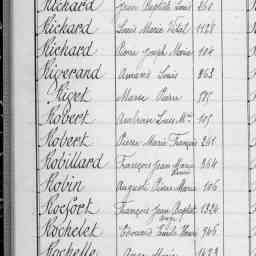 Richard Jean Baptiste Louis 260
Richard Louis Marie Vital 1128
Richard Pierre Joseph Marie 104
Rigerand Amand Louis 963
Riget Marie Pierre
Robert Louis Me. 105
Robert Pierre Marie François 261
Robillard François Jean Marie 264
Robin August Pierre Marie 106
Rocfort François Jean Baptiste 1324
Rochelet Edouard Emile Henri 946
Rochelle